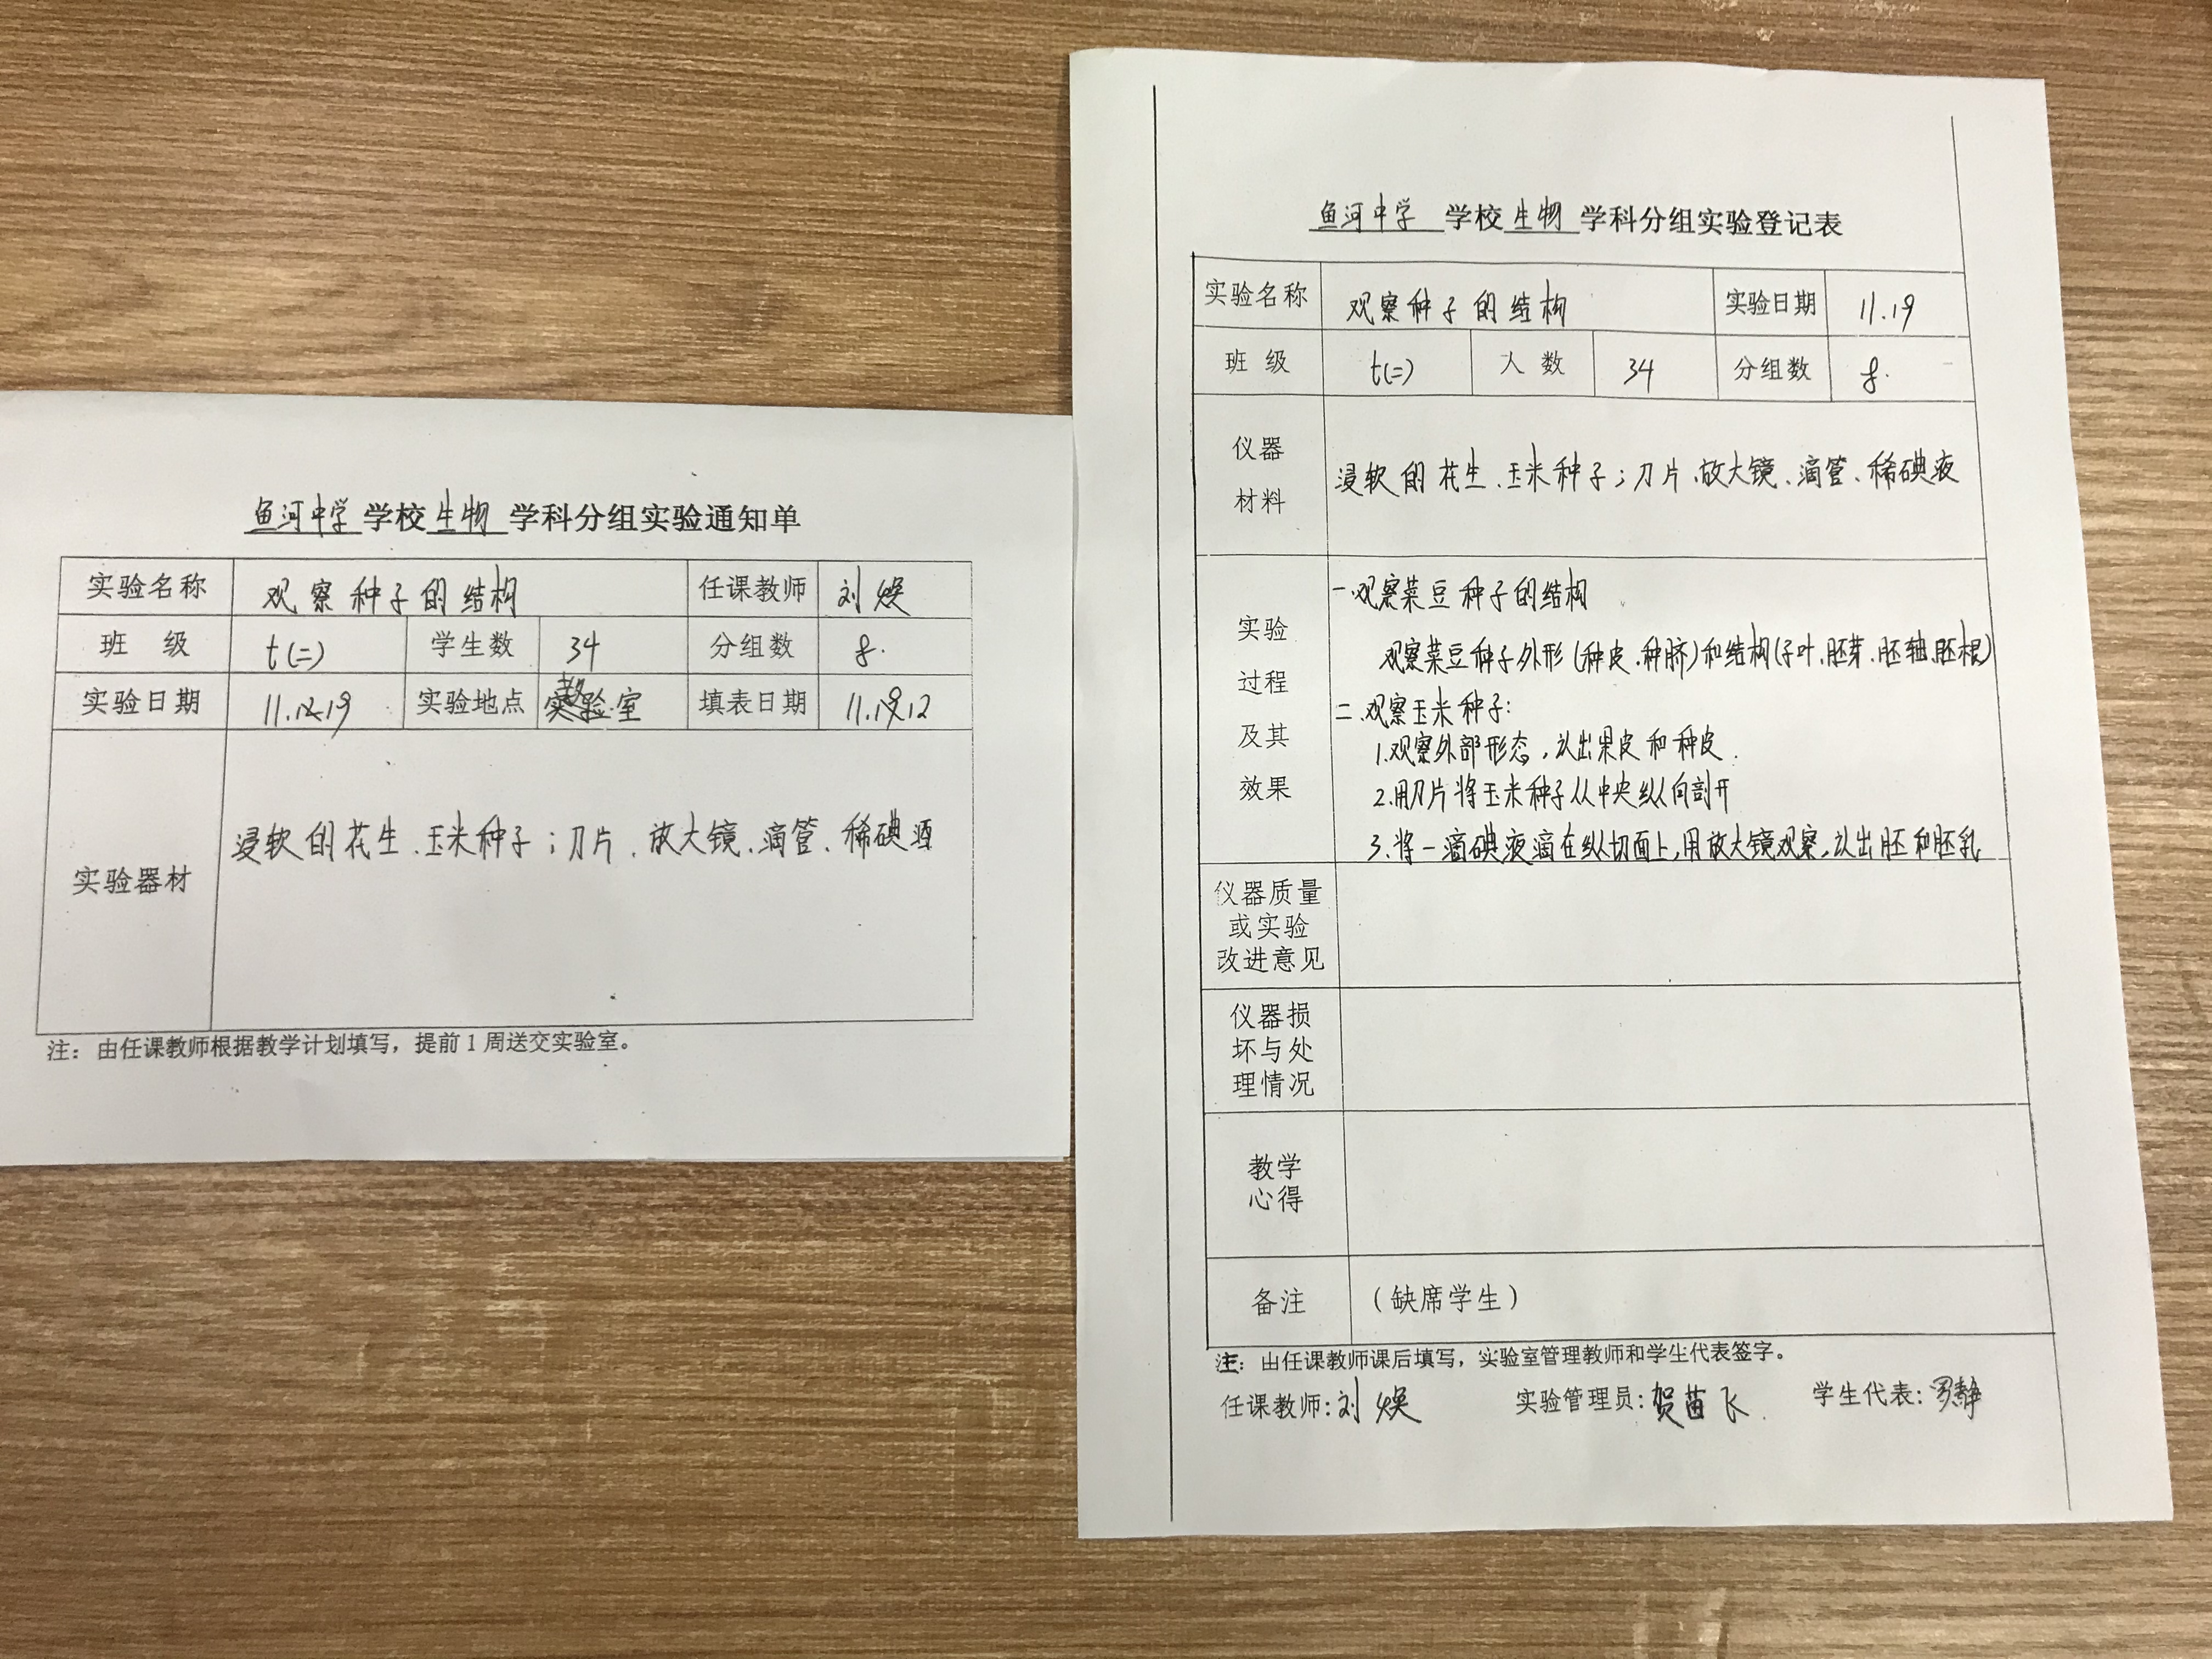 鱼河中学 学校 生物 学科分组实验通知单
实验名称 观察种子的结构 任课教师 刘焕
班 级 七(二) 学生数 34 分组数 8.
实验日期 11.19 实验地点 实验室 填表日期 11.12
实验器材 浸软的花生、玉米种子；刀片、放大镜、滴管、稀碘酒
注：由任课教师根据教学计划填写，提前1周送交实验室。
鱼河中学 学校 生物 学科分组实验登记表
实验名称 观察种子的结构 实验日期 11.19
班 级 七(二) 人 数 34 分组数 8.
仪器
材料
浸软的花生、玉米种子；刀片、放大镜、滴管、稀碘液
实验
过程
及其
效果
一.观察菜豆种子的结构
观察菜豆种子外形(种皮、种脐)和结构(子叶、胚芽、胚轴、胚根)
二.观察玉米种子:
1.观察外部形态，认出果皮和种皮.
2.用刀片将玉米种子从中央纵向剖开
3.将一滴碘液滴在纵切面上,用放大镜观察,认出胚和胚乳
仪器质量
或实验
改进意见
仪器损
坏与处
理情况
教学
心得
备注 （缺席学生）
注：由任课教师课后填写，实验室管理教师和学生代表签字。
任课教师:刘焕 实验管理员:贺苗飞 学生代表:罗静